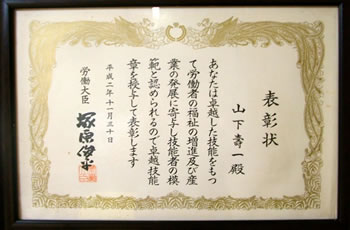 表彰状
山下壽一殿
あなたは卓越した技能をもつ
て労働者の福祉の増進及び産
業の発展に寄与し技能者の模
範と認められるので卓越技能
章を授与して表彰します
平成二年十一月三十日
労働大臣
塚原俊平